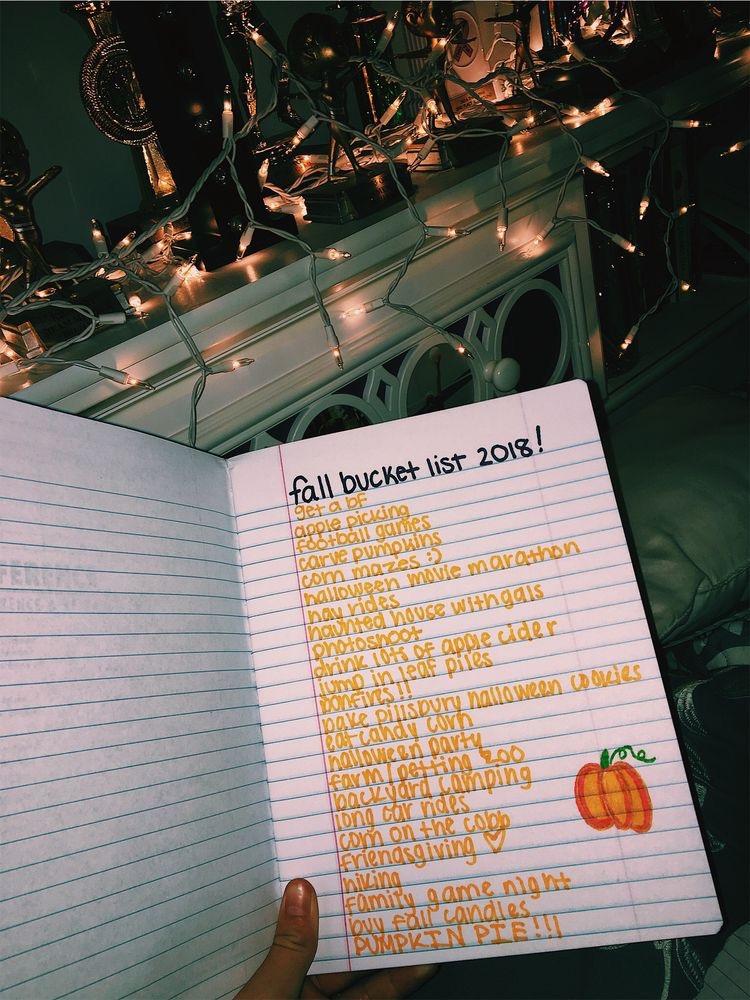 fall bucket list 2018!
get a bf
apple picking
football games
carve pumpkins
corn mazes :)
halloween movie marathon
hay rides
haunted house with gals
photoshoot
drink lots of apple cider
jump in leaf piles
bonfires!!
bake pillsbury halloween cookies
eat candy corn
halloween party
farm/petting zoo
backyard camping
long car rides
corn on the cobb
friendsgiving ♡
hiking
family game night
buy fall candles
PUMPKIN PIE!!!